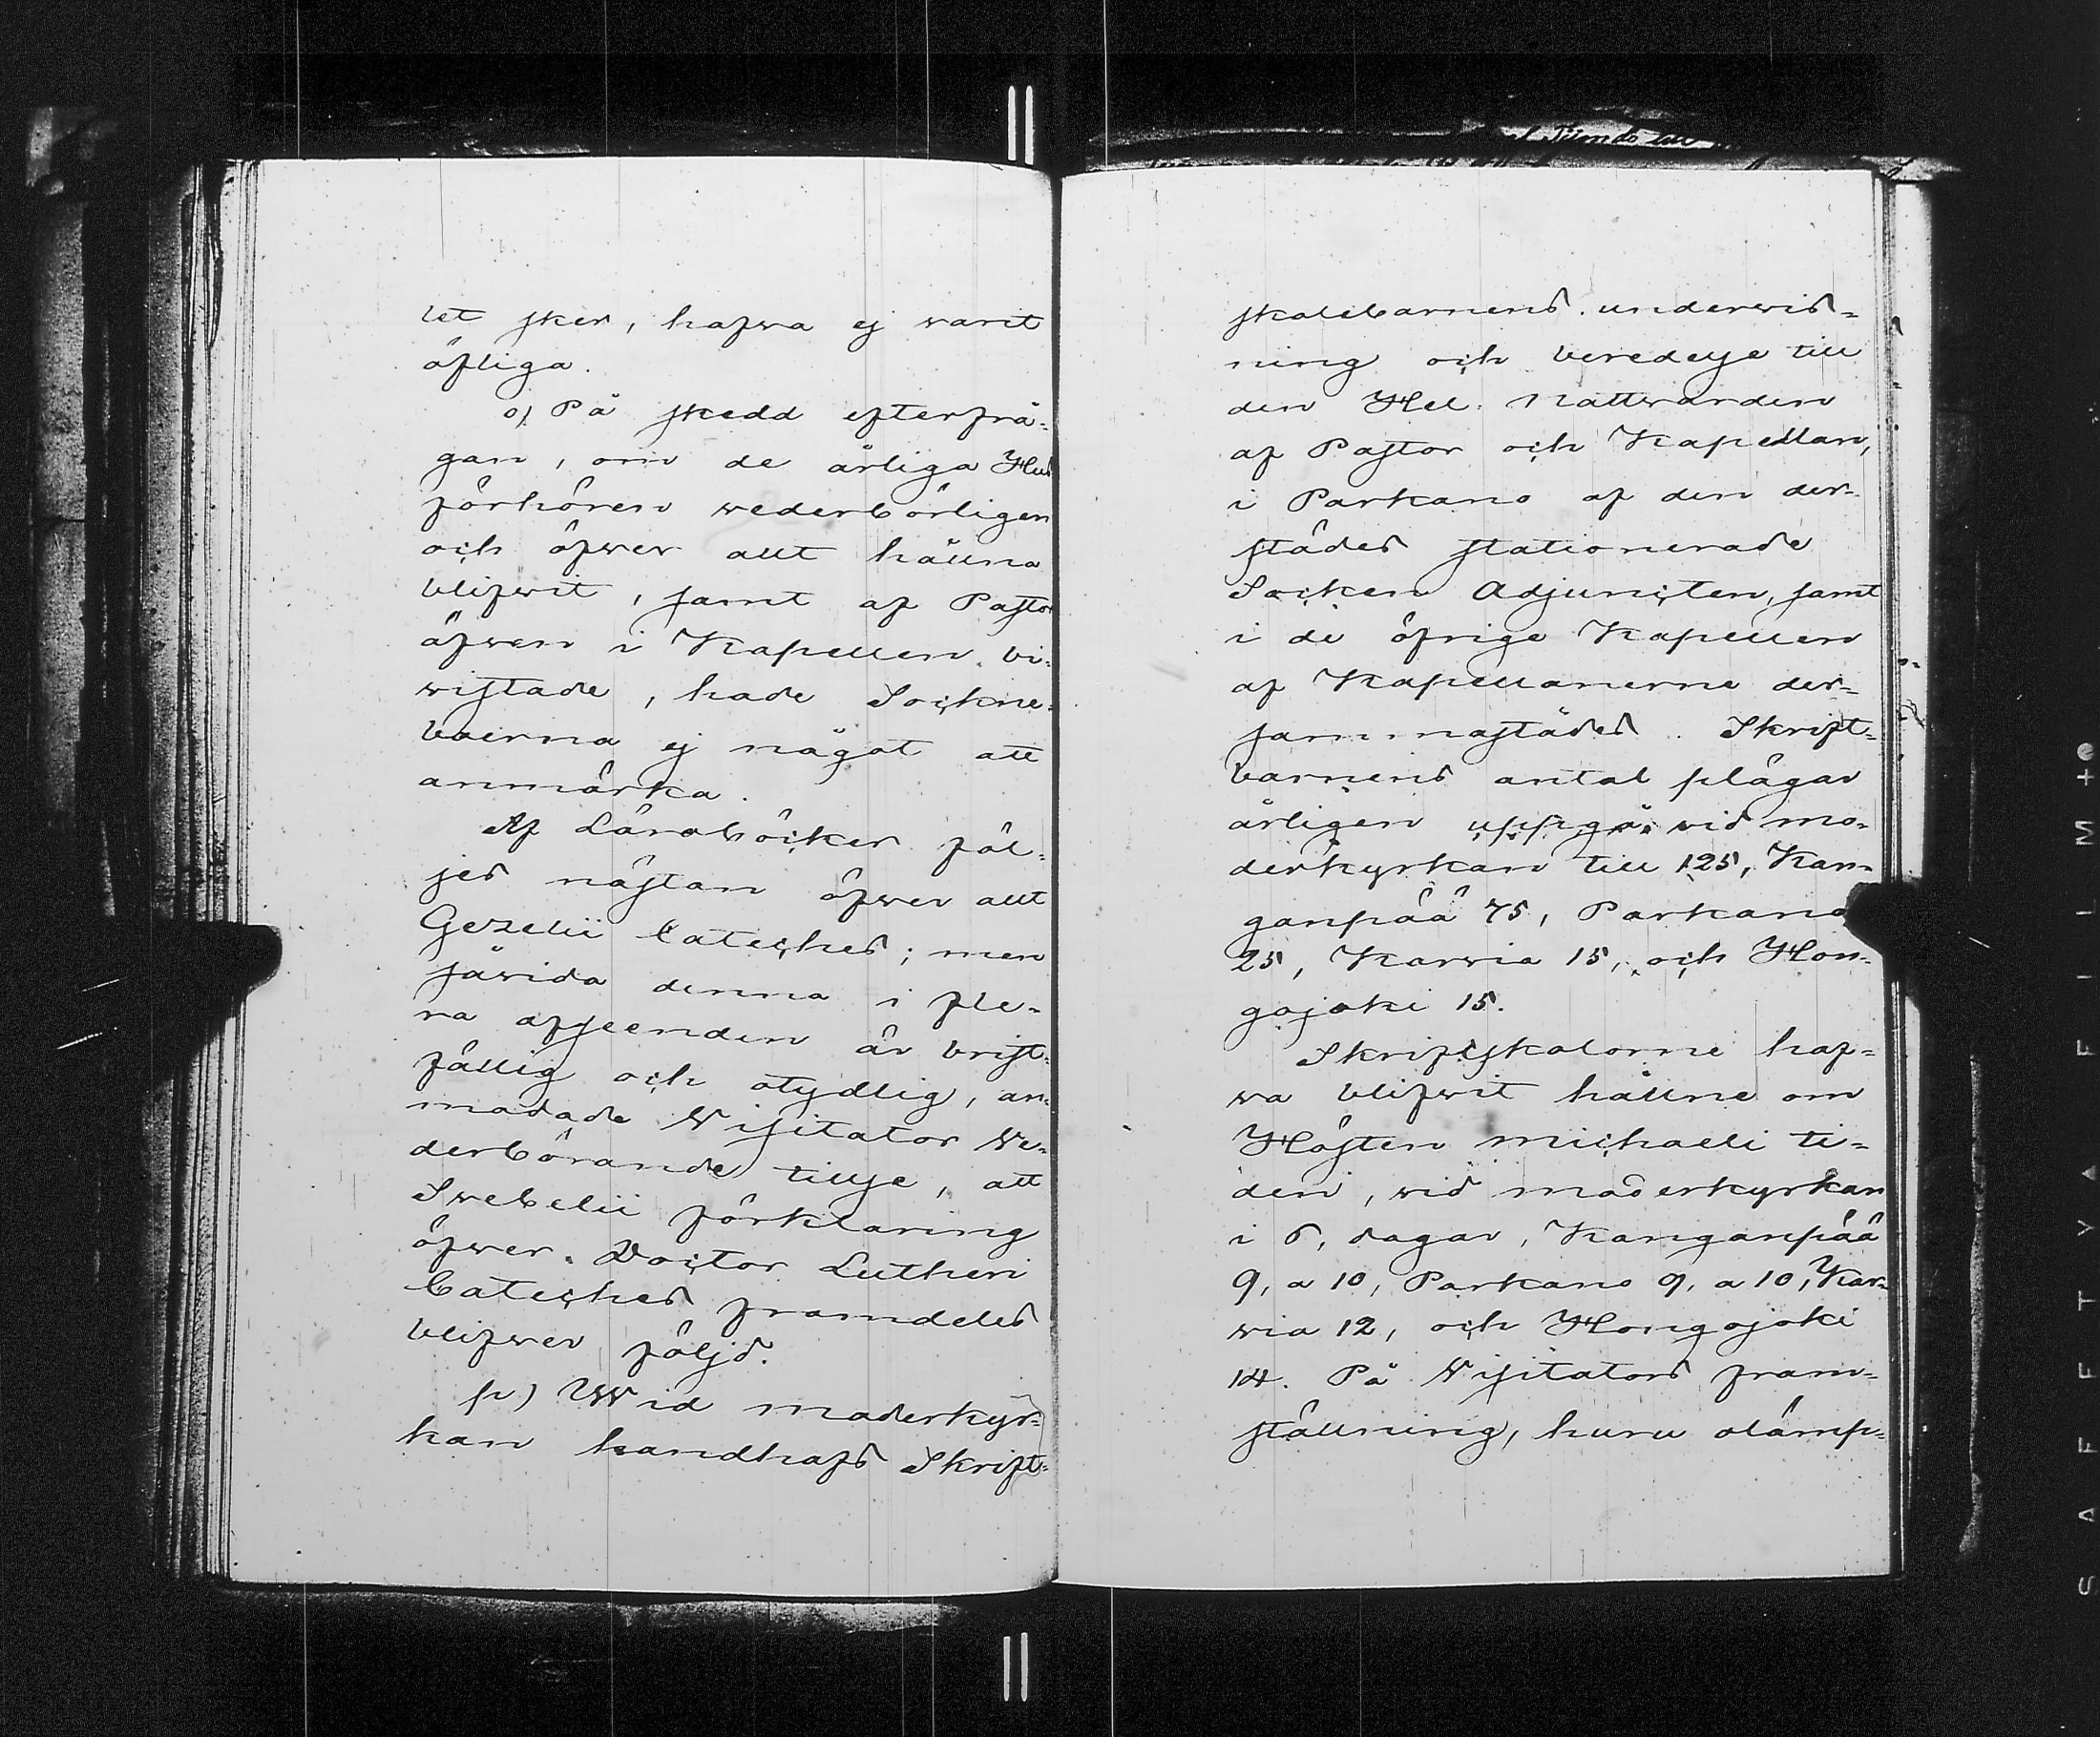 let sker, hafwa ej varit
öfliga.
o) På skedd efterfrå=
gan, om de årliga Hus
förhören wederbörligen
och öfwer allt hållna
blifwit, samt af Pastor
äfwen i Kapellen bi=
wistade, hade Sockne=
boerna ej något att
anmärka.
Af Läroböcker föl=
jes nästan öfwer allt
Gezelii Cateches; men
såvida denna i fle=
ra afseenden är brist=
fällig och otydlig, an=
modade Visitator We=
derbörande tillse, att
Swebelii förklaring
öfwer Doctor Lutheri
Cateches framdeles
blifwer följd.
p) Wid moderkyr=
kan handhafs Skrift=
skolebarnens underwis=
ning och beredelse till
den Hel. Nattwarden
af Pastor och Kapellan,
i Parkano af den der=
städes stationerade
Socken Adjuncten, samt
i de öfrige Kapellen
af Kapellanerne der=
sammastädes. Skrift=
barnens antal plägar
årligen uppgå vid mo=
derkyrkan till 125, Kan=
ganpää 75, Parkano
25, Karvia 15, och Hon=
gojoki 15.
Skriftskolorne haf=
wa blifwit hållne om
Hösten michaeli ti=
den, wid moderkyrkan
i 6, dagar, Kanganpää
9, a 10, Parkano 9, a 10, Kar=
via 12, och Hongojoki
14. På Visitators fram=
ställning, huru olämp=
SAFETY FILM